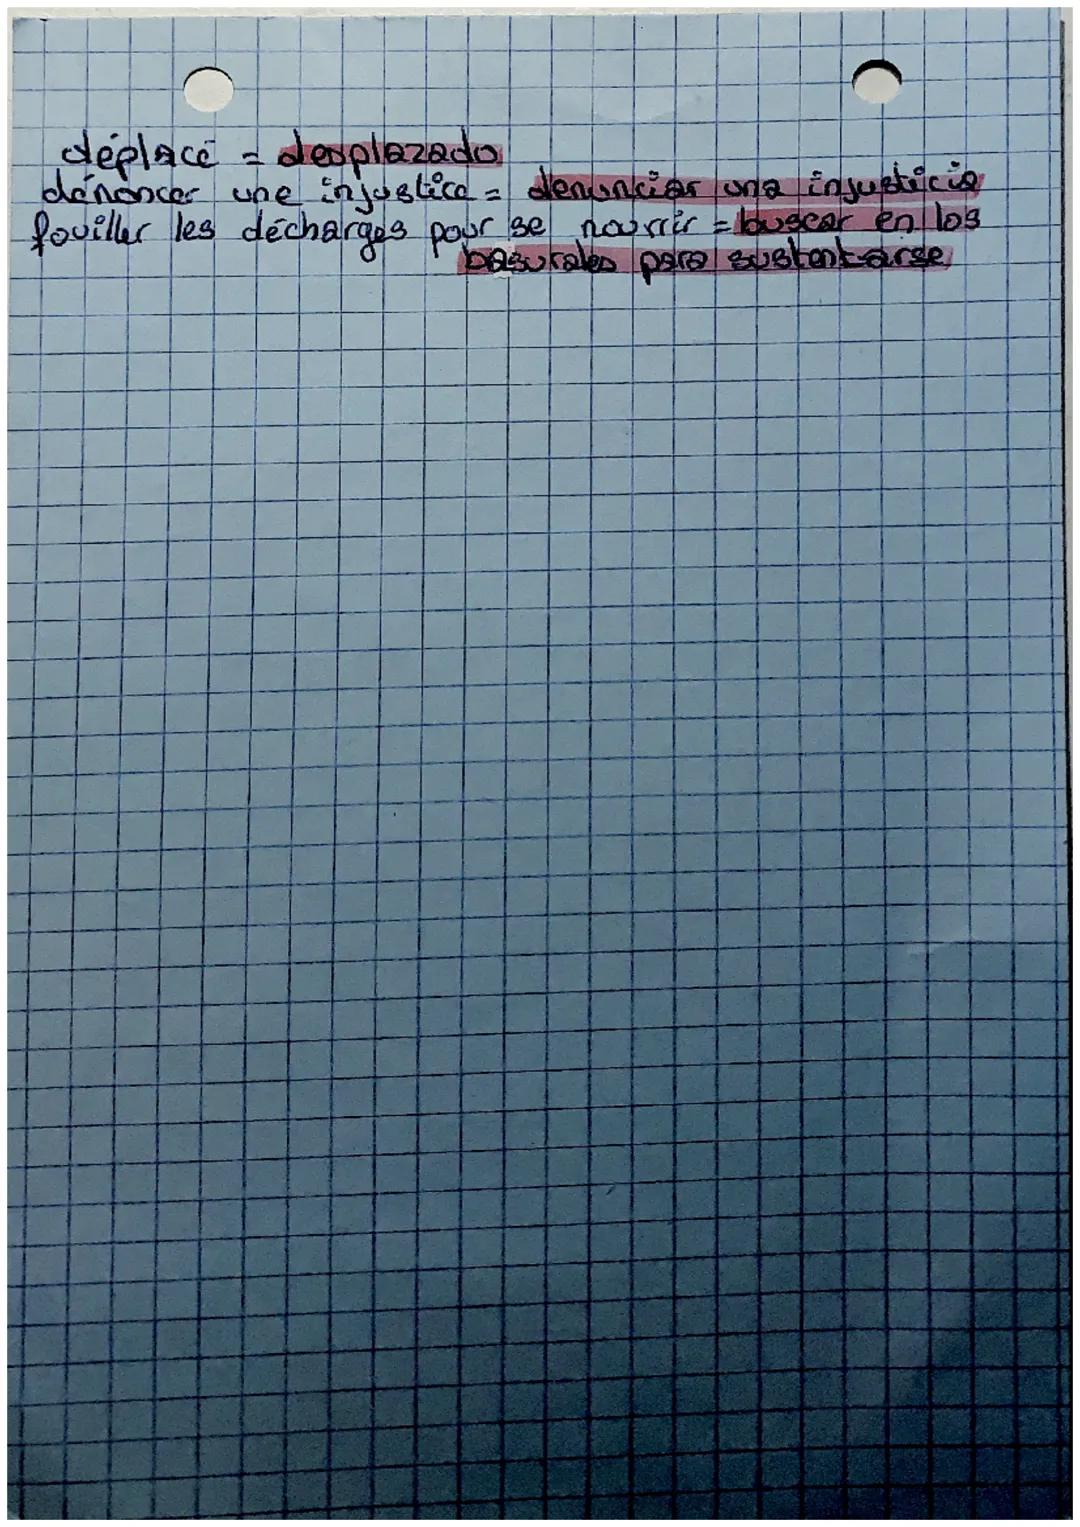 déplacé = desplazado
dénoncer une injustice = denunciar una injusticia
fouiller les décharges pour se nourrir = buscar en los
basurales para sustentarse